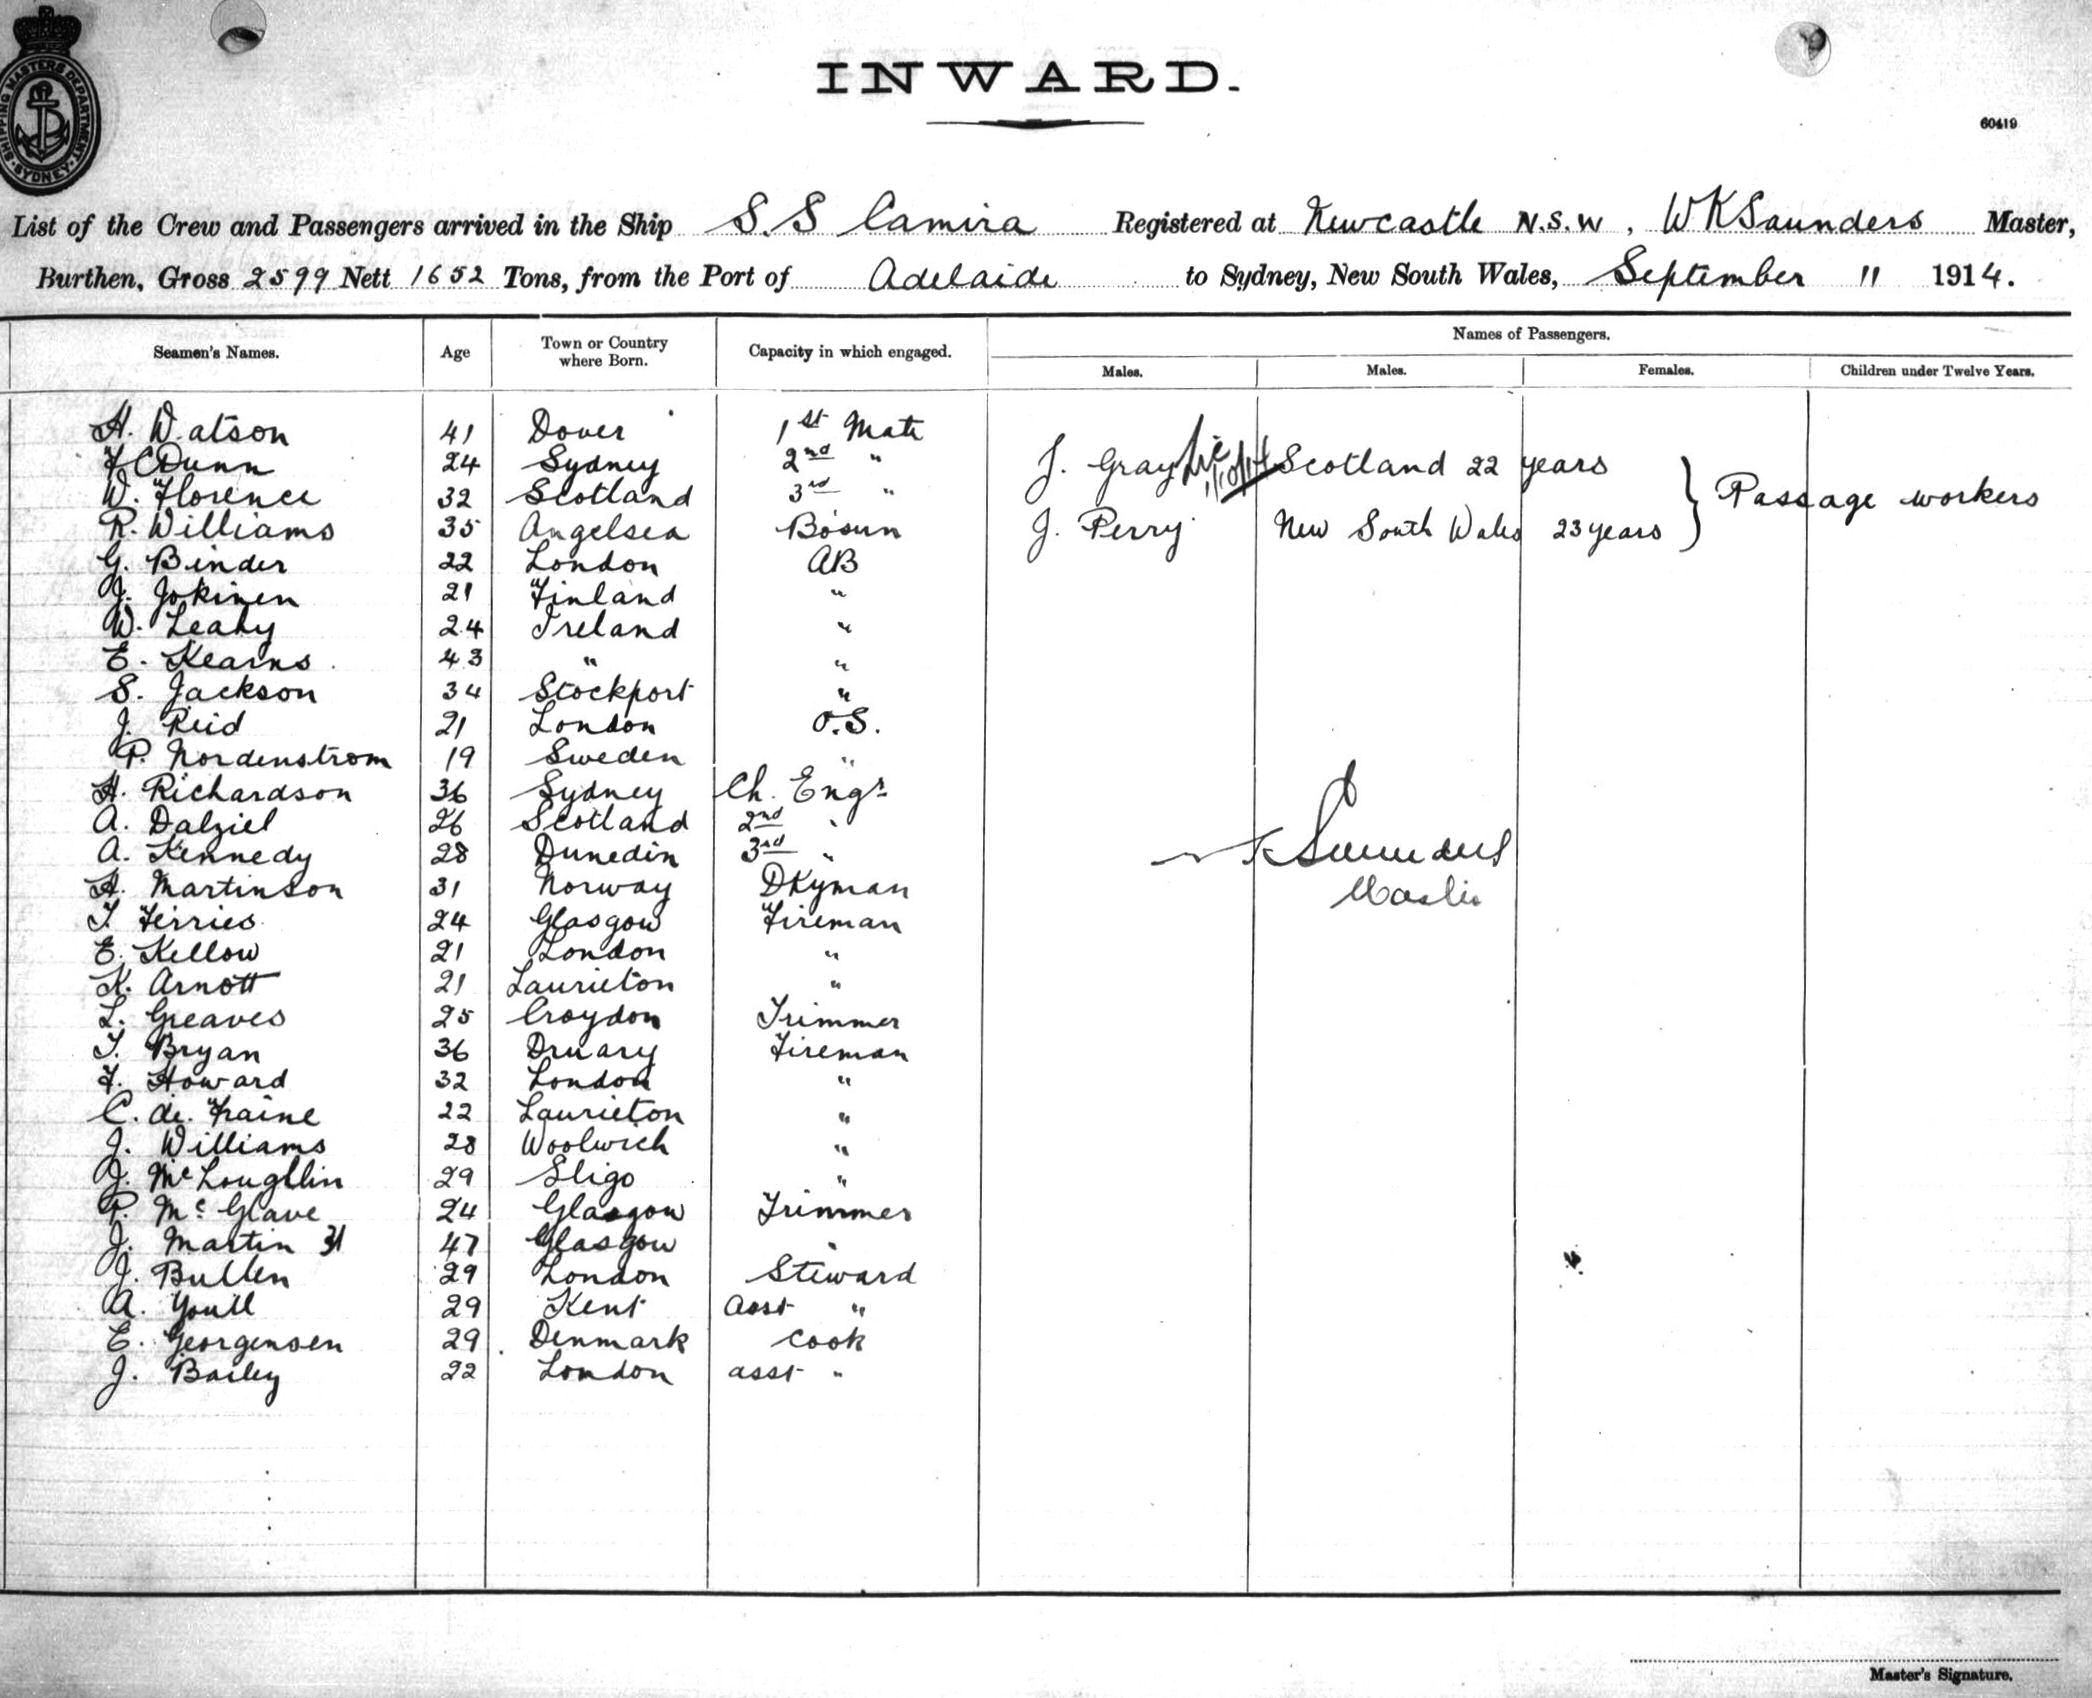 SHIPPING MASTERS DEPARTMENT
SYDNEY
INWARD.
60419
List of the Crew and Passengers arrived in the Ship S.S Camira Registered at Newcastle N.S.W, W K Saunders Master,
Burthen, Gross 2599 Nett 1652 Tons, from the Port of Adelaide to Sydney, New South Wales, September 11 1914.
Seamen's Names. Age Town or Country where Born. Capacity in which engaged. Names of Passengers.
Males. Males. Females. Children under Twelve Years.
H. Watson 41 Dover 1st Mate
F C Dunn 24 Sydney 2nd "
J. Gray Scotland 22 years
W. Florence 32 Scotland 3rd "
Passage workers
R. Williams 35 Angelsea Bosun
J. Perry New South Wales 23 years
G. Binder 22 London AB
J. Jokinen 21 Finland "
W. Leahy 24 Ireland "
E. Kearns 43 " "
S. Jackson 34 Stockport "
J. Reid 21 London O.S.
P. Nordenstrom 19 Sweden "
H. Richardson 36 Sydney Ch. Engr
A. Dalziel 26 Scotland 2nd "
A. Kennedy 28 Dunedin 3rd "
W K Saunders
H. Martinson 31 Norway Dkyman
Master
T. Ferries 24 Glasgow Fireman
E. Kellow 21 London "
K. Arnott 21 Laurieton "
L. Greaves 25 Croydon Trimmer
T. Bryan 36 Druary Fireman
F. Howard 32 London "
C. de. Fraine 22 Laurieton "
J. Williams 28 Woolwich "
J. McLoughlin 29 Sligo "
P. Mc Glave 24 Glasgow Trimmer
J. Martin 31 47 Glasgow "
J. Bullen 29 London Steward
A. Youll 29 Kent Asst "
E. Georgensen 29 Denmark Cook
J. Bailey 22 London asst "
Master's Signature.